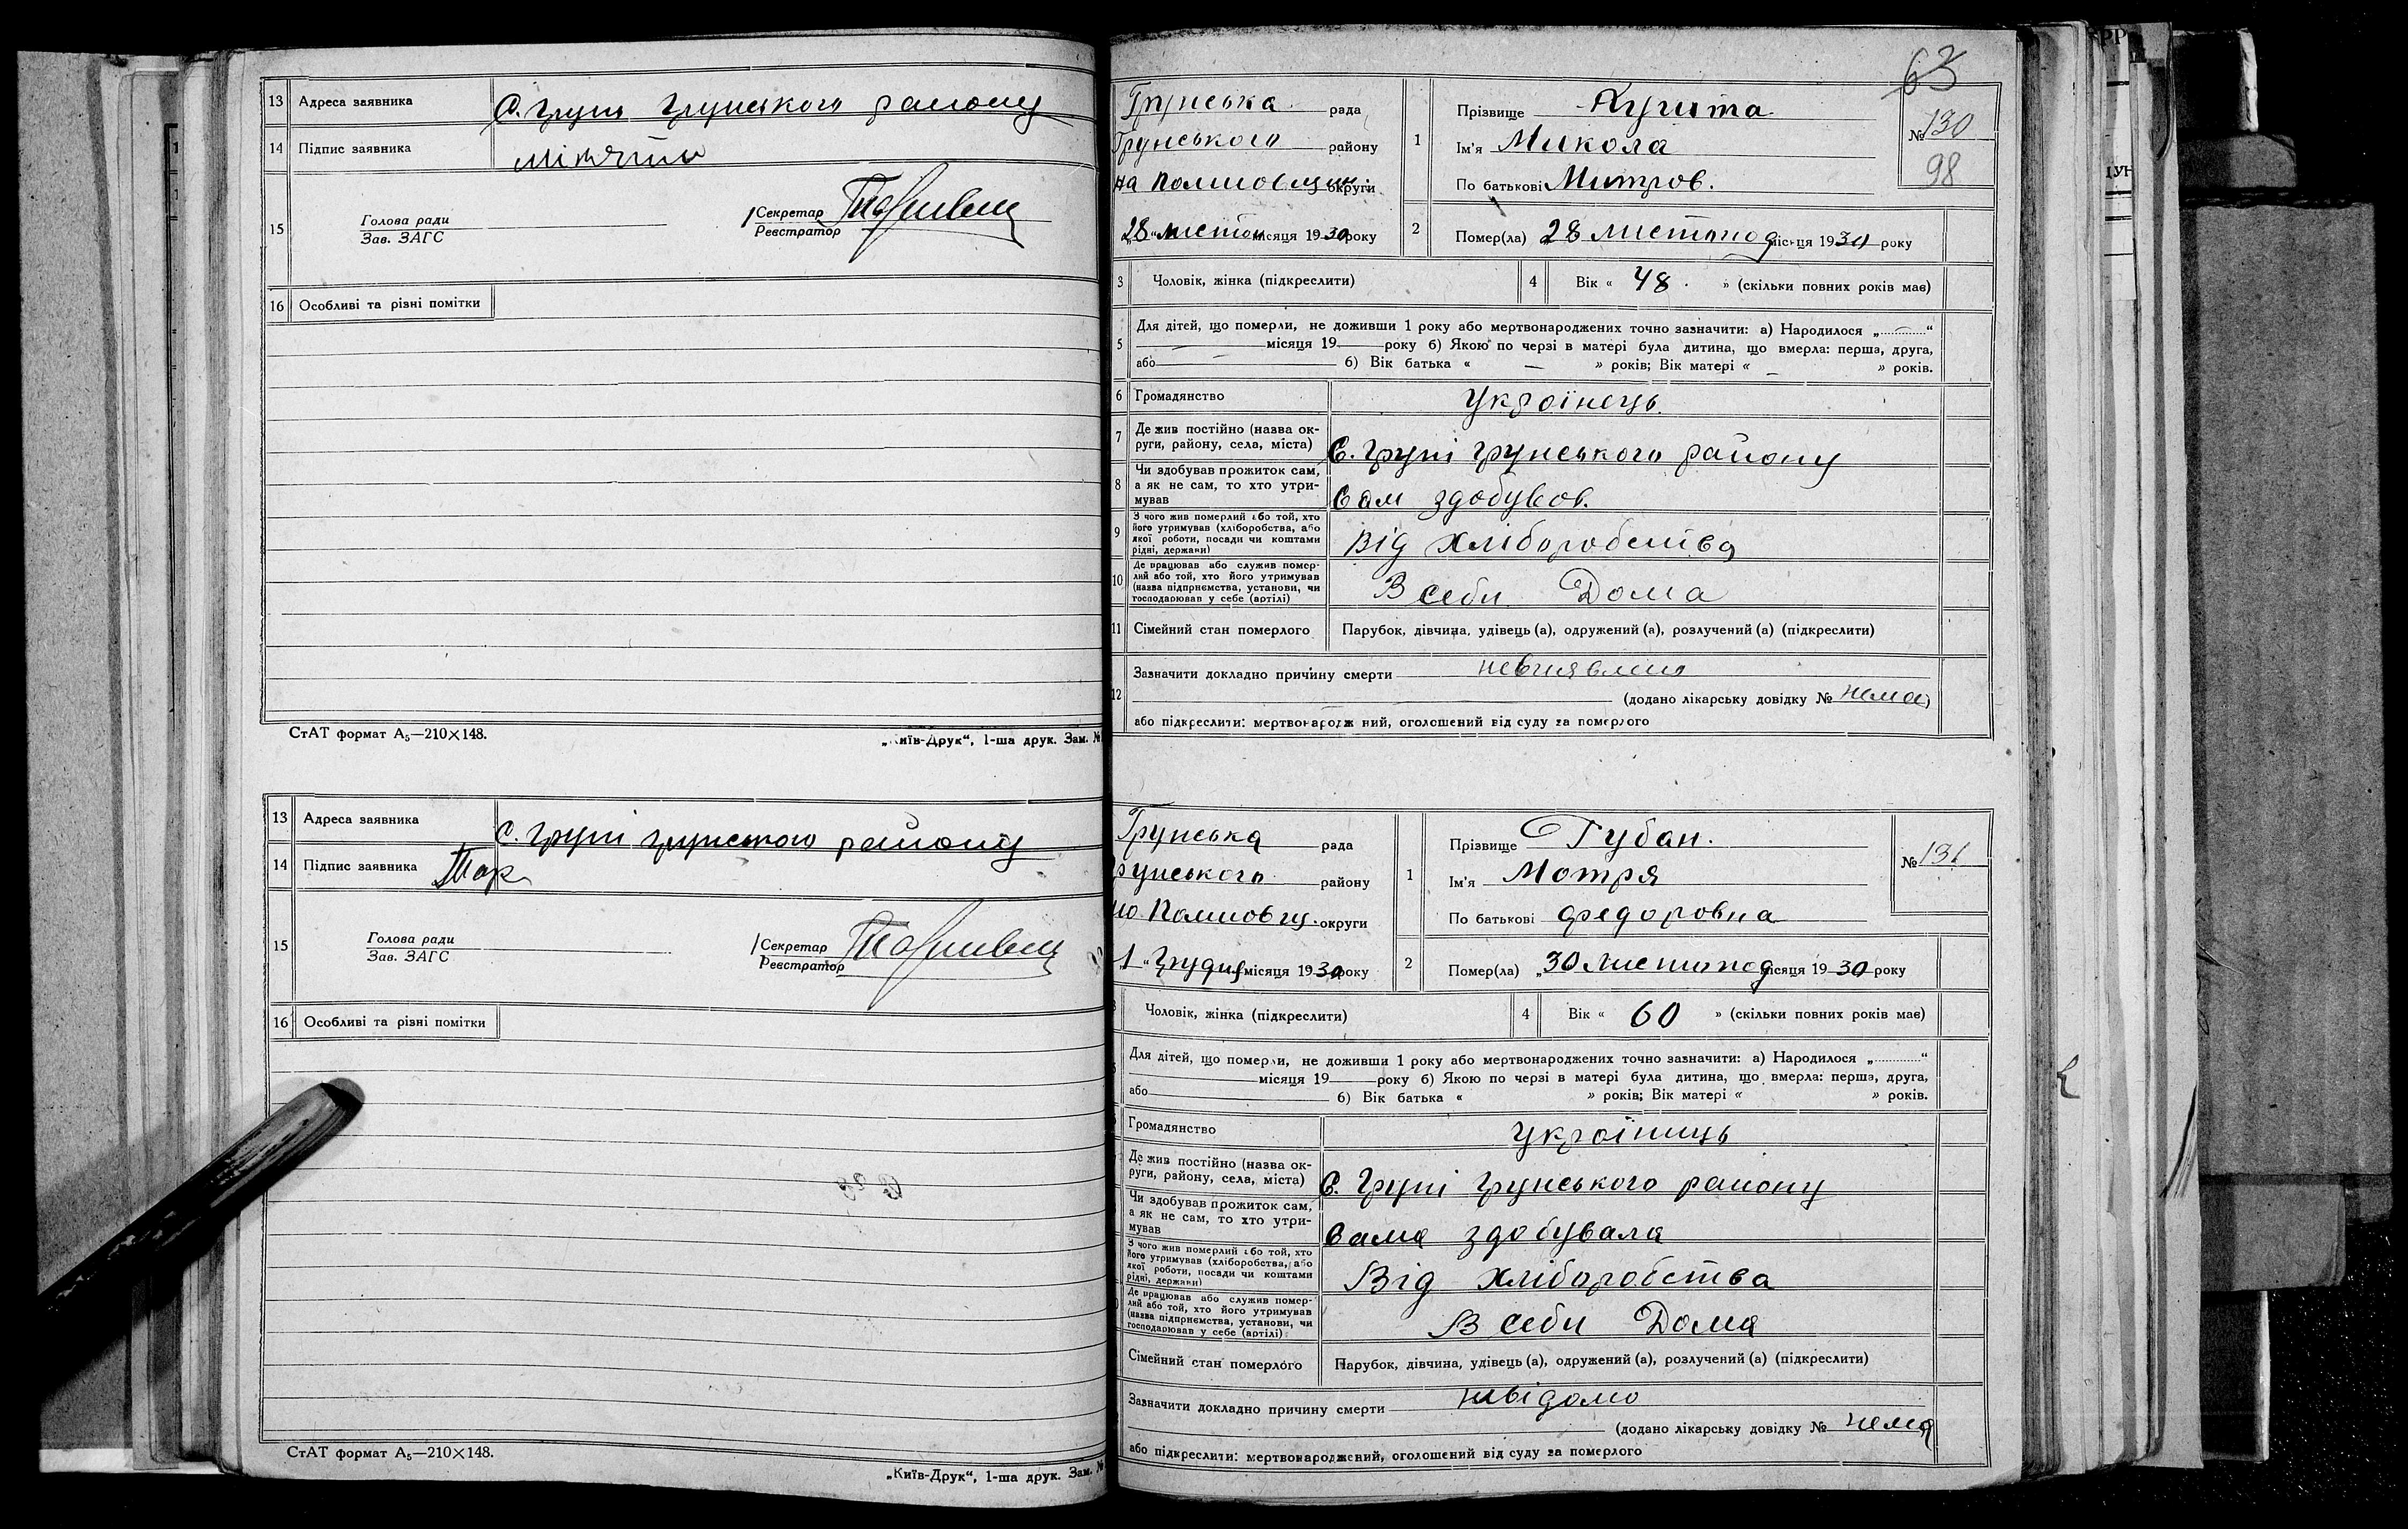 13 Адреса заявника С. Грунь Грунського району
14 Підпис заявника
15 Голова ради
Зав. ЗАГС
Секретар
Реєстратор
16 Особливі та різні помітки
СтАТ формат А₅—210×148.
„Київ-Друк“, 1-ша друк. Зам. №
13 Адреса заявника С. Груні грунського району
14 Підпис заявника
15 Голова ради
Зав. ЗАГС
Секретар
Реєстратор
16 Особливі та різні помітки
СтАТ формат А₅—210×148.
„Київ-Друк“, 1-ша друк. Зам. №
63
Грунська рада
Грунського району
на Полтовщині округи
„28“ листоп місяця 1930 року
1 Прізвище
Ім'я Микола
По батькові Митров.
№ 130
98
2 Помер(ла) 28 листопод місяця 1930 року
3 Чоловік, жінка (підкреслити)
4 Вік « 48 » (скільки повних років мав)
5 Для дітей, що померли, не доживши 1 року або мертвонароджених точно зазначити: а) Народилося „ — “
місяця 19 року б) Якою по черзі в матері була дитина, що вмерла: перша, друга,
або б) Вік батька « — » років; Вік матері « — » років.
6 Громадянство Україінець
7 Де жив постійно (назва округи, району, села, міста) С. Груні Грунського району
8 Чи здобував прожиток сам, а як не сам, то хто утримував Сам здобував.
9 З чого жив померлий або той, хто його утримував (хліборобства, або якої роботи, посади чи коштами рідні, держави) Від хліборобства
10 Де працював або служив померлий або той, хто його утримував (назва підприємства, установи, чи господарював у себе (артілі) В себи Дома
11 Сімейний стан померлого Парубок, дівчина, удівець (а), одружений (а), розлучений (а) (підкреслити)
12 Зазначити докладно причину смерти
(додано лікарську довідку № нема)
або підкреслити: мертвонароджений, оголошений від суду за померлого
Грунська рада
Грунського району
на Полтовщ. округи
1 “ Грудня місяця 1930 року
1 Прізвище Губан.
Ім'я Мотря
По батькові Федоровна
№ 131
2 Помер(ла) „30 Листопод місяця 1930 року
Чоловік, жінка (підкреслити)
4 Вік « 60 » (скільки повних років мав)
Для дітей, що померли, не доживши 1 року або мертвонароджених точно зазначити: а) Народилося „ “
місяця 19 року б) Якою по черзі в матері була дитина, що вмерла: перша, друга,
або б) Вік батька « » років; Вік матері « » років.
Громадянство Україниць
Де жив постійно (назва округи, району, села, міста) С. Груні Грунського району
Чи здобував прожиток сам, а як не сам, то хто утримував Сама здобувала
З чого жив померлий або той, хто його утримував (хліборобства, або якої роботи, посади чи коштами рідні, держави) Від хліборобства
Де працював або служив померлий або той, хто його утримував (назва підприємства, установи, чи господарював у себе (артілі) В себи Дома
Сімейний стан померлого Парубок, дівчина, удівець (а), одружений (а), розлучений (а) (підкреслити)
Зазначити докладно причину смерти невідомо
(додано лікарську довідку № нема
або підкреслити: мертвонароджений, оголошений від суду за померлого